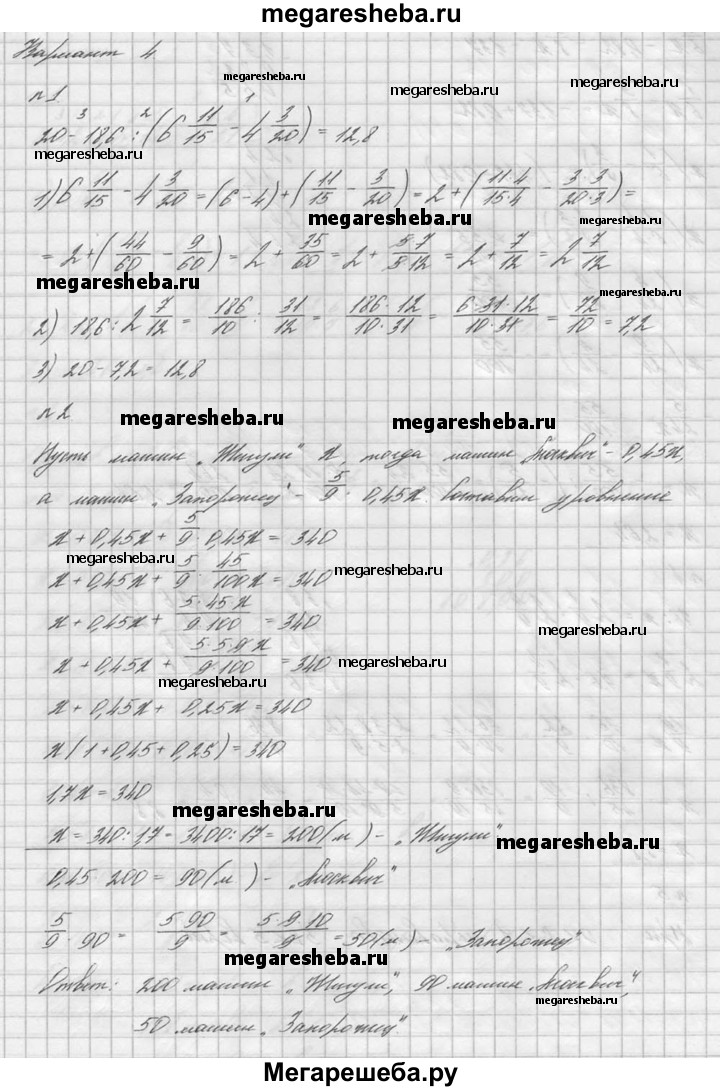 megaresheba.ru
Вариант 4
megaresheba.ru
megaresheba.ru
№1
3 2 1
20 - 18,6 : (6 11/15 - 4 3/20) = 12,8
megaresheba.ru
1) 6 11/15 - 4 3/20 = (6 - 4) + (11/15 - 3/20) = 2 + (11·4/15·4 - 3·3/20·3) =
megaresheba.ru
megaresheba.ru
= 2 + (44/60 - 9/60) = 2 + 35/60 = 2 + 5·7/5·12 = 2 + 7/12 = 2 7/12
megaresheba.ru
megaresheba.ru
2) 18,6 : 2 7/12 = 186/10 : 31/12 = 186·12/10·31 = 6·31·12/10·31 = 72/10 = 7,2
3) 20 - 7,2 = 12,8
№2
megaresheba.ru
megaresheba.ru
Пусть машин „Жигули" x, тогда машин „Москвич" - 0,45x,
а машин „Запорожец" - 5/9 · 0,45x. Составим уровнение
x + 0,45x + 5/9 · 0,45x = 340
megaresheba.ru
megaresheba.ru
x + 0,45x + 5/9 · 45/100 x = 340
x + 0,45x + 5·45x/9·100 = 340
megaresheba.ru
x + 0,45x + 5·5·9x/9·100 = 340
megaresheba.ru
megaresheba.ru
x + 0,45x + 0,25x = 340
x(1 + 0,45 + 0,25) = 340
1,7x = 340
megaresheba.ru
x = 340 : 1,7 = 3400 : 17 = 200 (м) - „Жигули"
megaresheba.ru
0,45 · 200 = 90 (м) - „Москвич"
5/9 · 90 = 5·90/9 = 5·9·10/9 = 50 (м) - „Запорожец"
megaresheba.ru
Ответ: 200 машин „Жигули", 90 машин „Москвич",
megaresheba.ru
50 машин „Запорожец".
Мегарешеба.ру